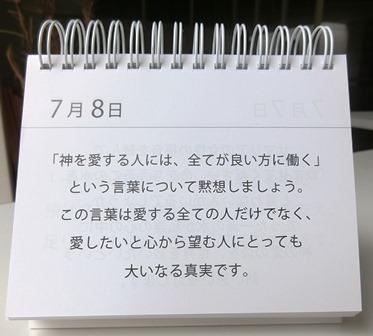 7月8日
「神を愛する人には、全てが良い方に働く」
という言葉について黙想しましょう。
この言葉は愛する全ての人だけでなく、
愛したいと心から望む人にとっても
大いなる真実です。